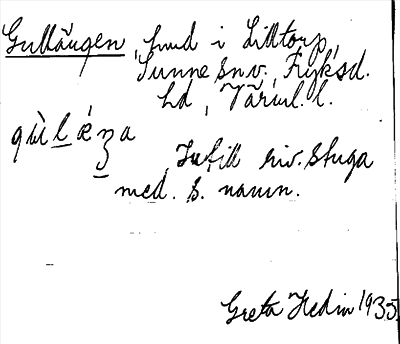 Gullängen, hmd i Lilltorp,
Sunne snv., Fryksd.
hd, Värml. l.
Intill riv. stuga
med s. namn.
Greta Hedin 1935.